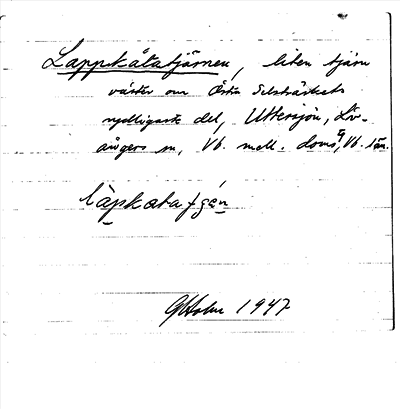 Lappkåtatjärnen, liten tjärn
väster om Östra Selsträskets
nordligaste del, Uttersjön, Löv-
ångers sn, Vb. mell. doms, Vb. län.
làpkataʃǵén
G Holm 1947